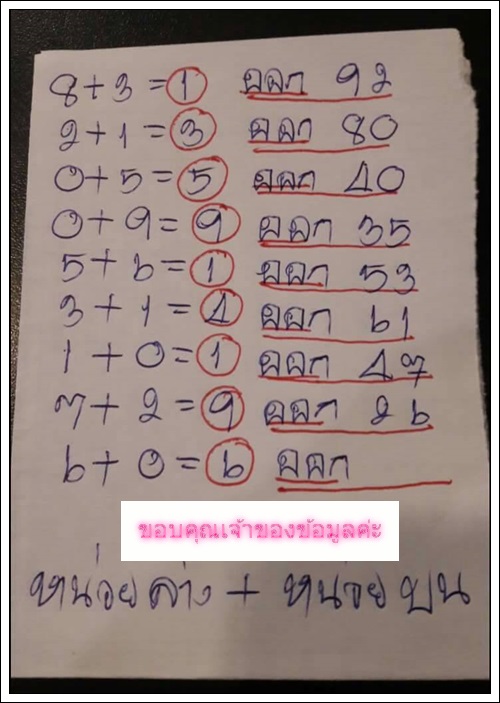 8+3=1 ออก 92
2+1=3 ออก 80
0+5=5 ออก 40
0+9=9 ออก 35
5+6=1 ออก 53
3+1=4 ออก 61
1+0=1 ออก 47
7+2=9 ออก 26
6+0=6 ออก
ขอบคุณเจ้าของข้อมูลค่ะ
หน่วยล่าง + หน่วยบน